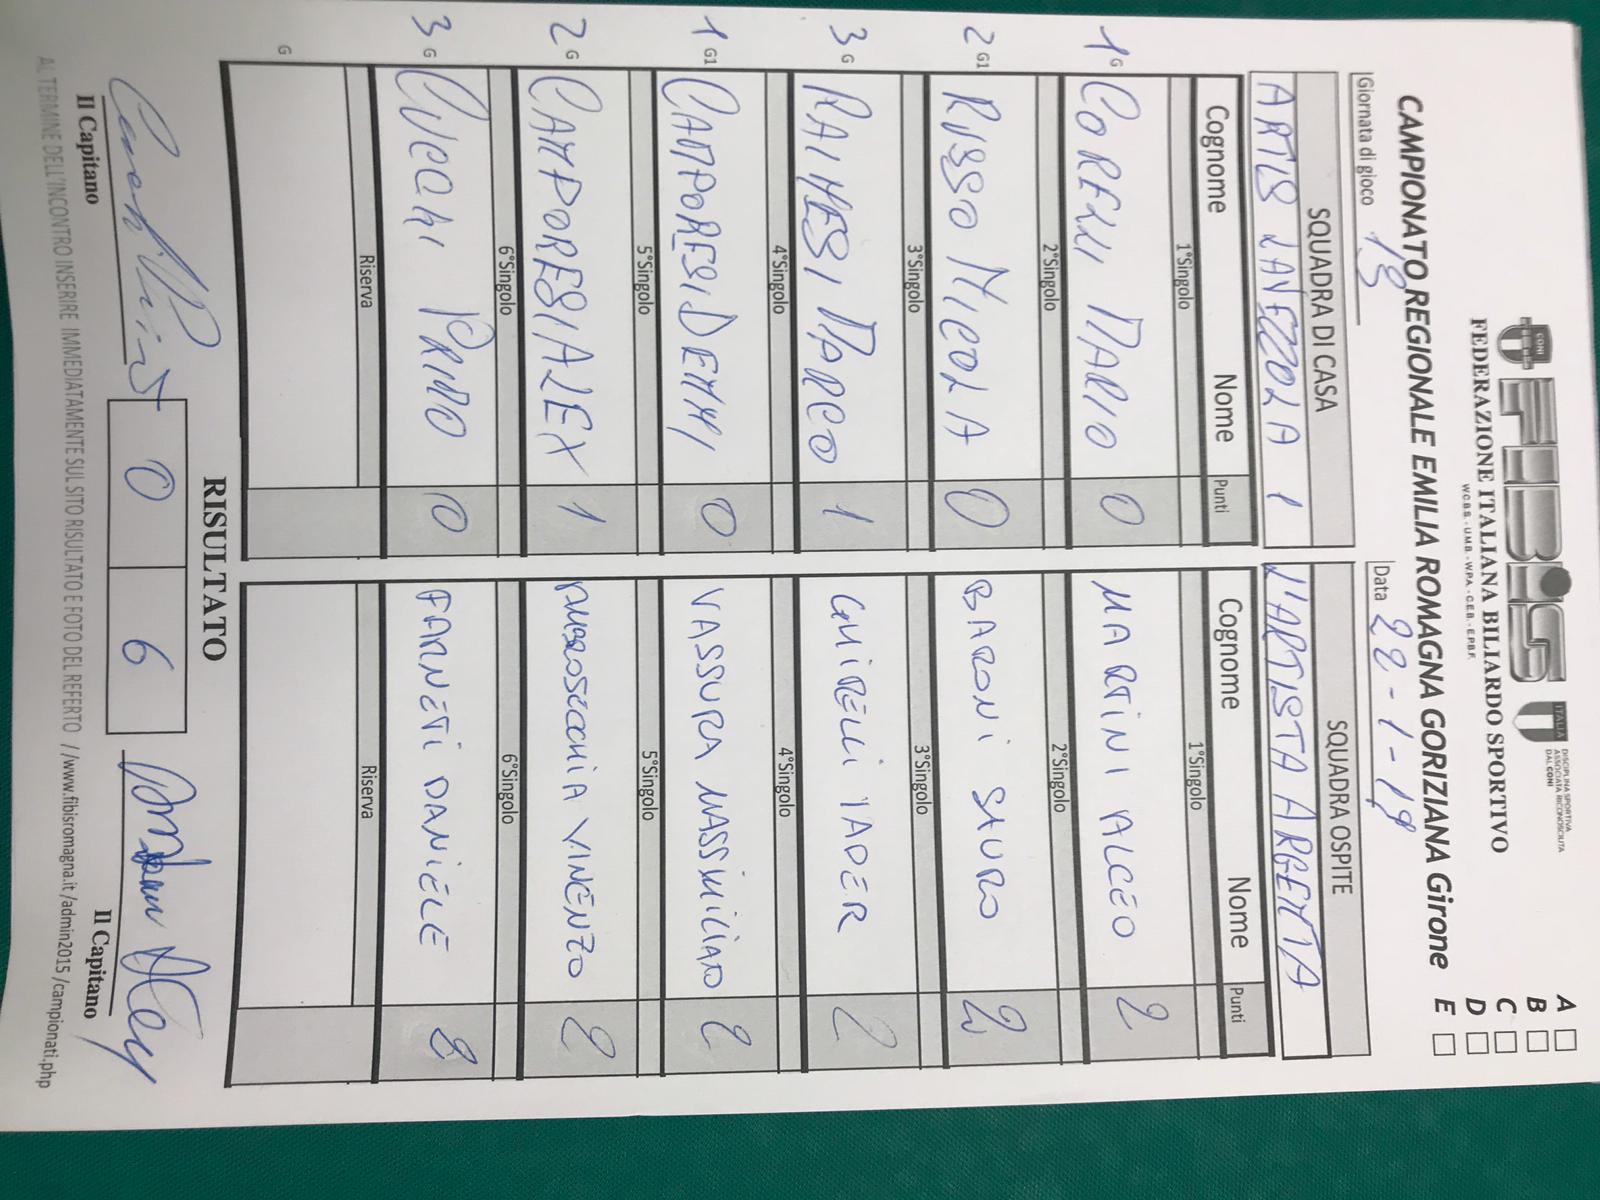 CONI
FIBiS
ITALIA
DISCIPLINA SPORTIVA
ASSOCIATA RICONOSCIUTA
DAL CONI
FEDERAZIONE ITALIANA BILIARDO SPORTIVO
W.C.B.S. - U.M.B. - W.P.A. - C.E.B. - E.P.B.F.
CAMPIONATO REGIONALE EMILIA ROMAGNA GORIZIANA Girone
A
B
C
D
E
Giornata di gioco 13
Data 22-1-19
SQUADRA DI CASA SQUADRA OSPITE
ARTIS LAVEZZOLA 1 L'ARTISTA ARGENTA
Cognome Nome Punti Cognome Nome Punti
1°Singolo 1°Singolo
1 G CORELLI MARIO 0 MARTINI ALCEO 2
2°Singolo 2°Singolo
2 G1 RUSSO NICOLA 0 BARONI SAURO 2
3°Singolo 3°Singolo
3 G MARCO 1 GHIRELLI IADER 2
4°Singolo 4°Singolo
1 G1 CAMPORESI DEMMI 0 VASSURA MASSIMILIANO 2
5°Singolo 5°Singolo
2 G CAMPORESI ALEX 1 VINCENZO 2
6°Singolo 6°Singolo
3 G PRIMO 0 FARNETI DANIELE 2
Riserva Riserva
G
RISULTATO
0 6
Il Capitano Il Capitano
AL TERMINE DELL'INCONTRO INSERIRE IMMEDIATAMENTE SUL SITO RISULTATO E FOTO DEL REFERTO //www.fibisromagna.it/admin2015/campionati.php